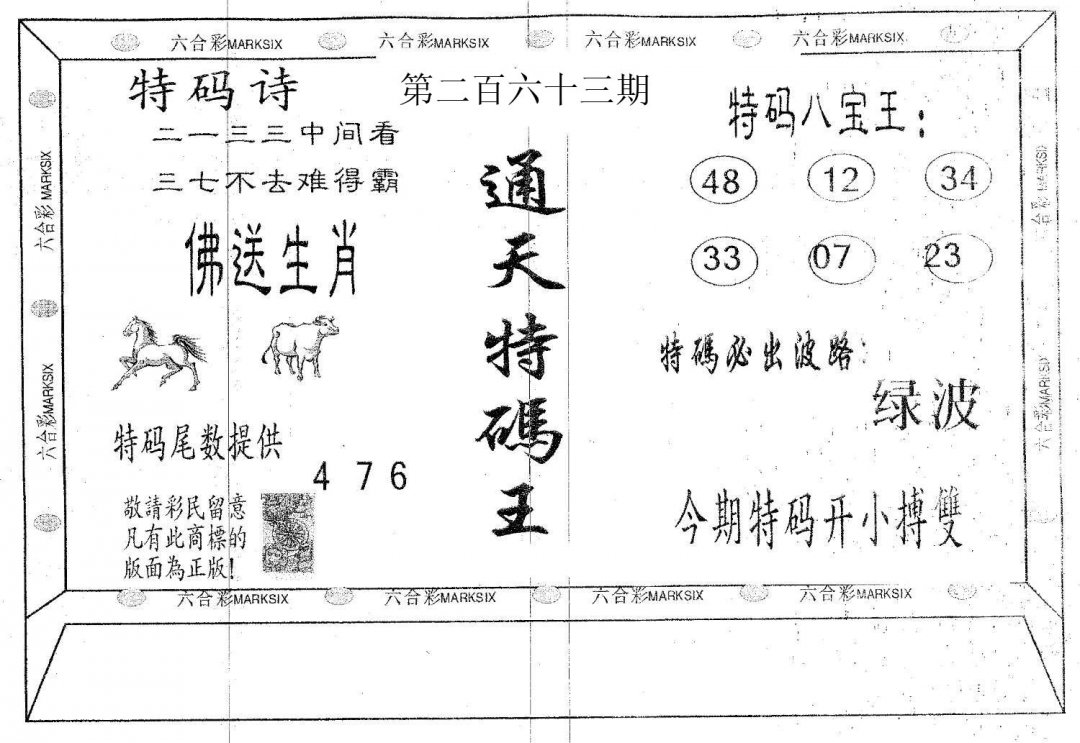 六合彩MARKSIX 六合彩MARKSIX 六合彩MARKSIX 六合彩MARKSIX
第二百六十三期
特码诗
二一三三中间看
三七不去难得霸
佛送生肖
特码尾数提供
4 7 6
敬請彩民留意
凡有此商標的
版面為正版!
通天特碼王
特码八宝王:
48 12 34
33 07 23
特碼必出波路:
绿波
今期特码开小搏雙
六合彩MARKSIX
六合彩MARKSIX
六合彩MARKSIX
六合彩MARKSIX
六合彩MARKSIX 六合彩MARKSIX 六合彩MARKSIX 六合彩MARKSIX